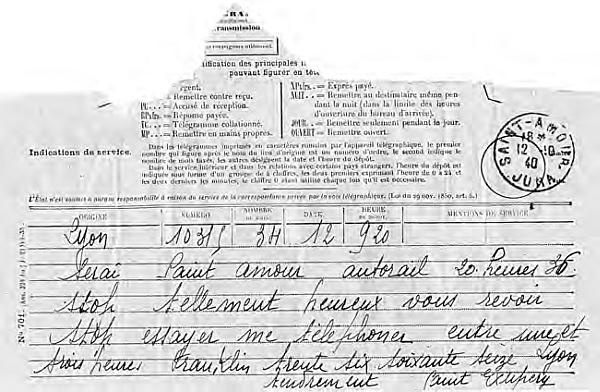 transmission
pouvant figurer en tête
Remettre contre reçu.
PC... = Accusé de réception.
RPx = Réponse payée.
TC... = Télégramme collationné.
MP... = Remettre en mains propres.
XPx = Exprès payé.
NUIT.. = Remettre au destinataire même pendant la nuit (dans la limite des heures d'ouverture du bureau d'arrivée).
JOUR.. = Remettre seulement pendant le jour.
OUVERT = Remettre ouvert.
Indications de service.
Dans les télégrammes imprimés en caractères romains par l'appareil télégraphique, le premier
nombre qui figure après le nom du lieu d'origine est un numéro d'ordre, le second indique le
nombre de mots taxés, les autres désignent la date et l'heure de dépôt.
Dans le service intérieur et dans les relations avec certains pays étrangers, l'heure de dépôt est
indiquée sous forme d'un groupe de 4 chiffres, les deux premiers exprimant l'heure de 0 à 24 et
les deux derniers les minutes, le chiffre 0 étant utilisé chaque fois qu'il est nécessaire.
SAINT-AMOUR
18
12 -10
40
JURA
L'État n'est soumis à aucune responsabilité à raison du service de la correspondance privée par la voie télégraphique. (Loi du 29 nov. 1850, art. 6.)
ORIGINE NUMÉRO NOMBRE DE MOTS DATE HEURE DE DÉPÔT MENTIONS DE SERVICE
Lyon 10315 34 12 920
Serai Saint amour autorail 20 heures 36
stop tellement heureux vous revoir
Stop essayer me téléphoner entre une et
trois heures Franklin trente six soixante seize Lyon
tendrement Saint Exupery
N° 701.